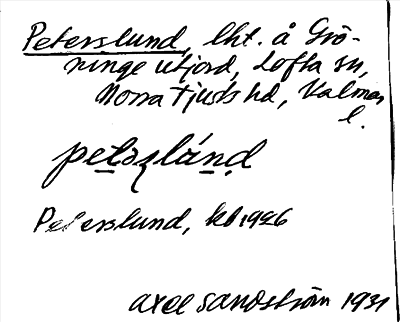 Peterslund, lht. å Grö-
ninge utjord, Lofta sn,
Norra Tjusts hd, Kalmar
l.
petəʂlánd
Peterslund, kb 1926
Axel Sandström 1931